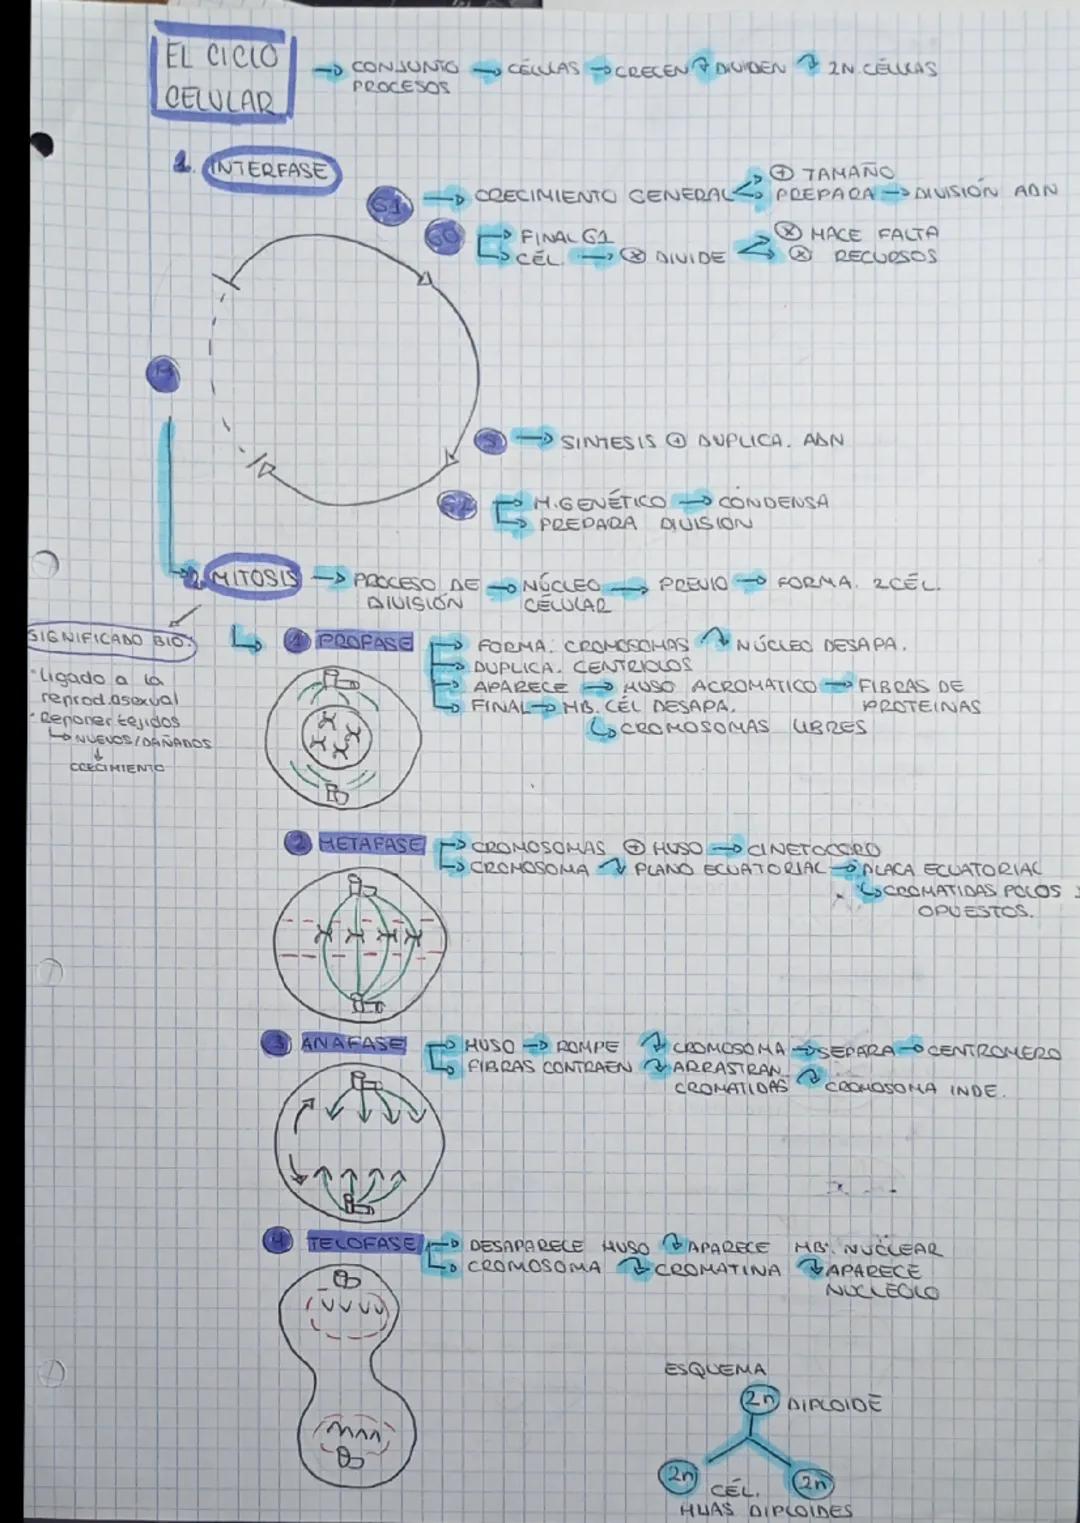 EL CICLO
CELULAR
→ CONJUNTO PROCESOS → CÉLULAS → CRECEN DIVIDEN 2N CÉLULAS
1. INTERFASE
G1 → CRECIMIENTO GENERAL
⊕ TAMAÑO
PREPARA → DIVISIÓN ADN
G0 → FINAL G1
→ CÉL. → ⊗ DIVIDE
⊗ HACE FALTA
⊗ RECURSOS
M
S → SINTESIS ⊕ DUPLICA. ADN
G2 → M.GENÉTICO → CONDENSA
→ PREPARA DIVISIÓN
2. MITOSIS → PROCESO DE DIVISIÓN → NÚCLEO CELULAR → PREVIO → FORMA. 2CÉL.
SIGNIFICADO BIO:
· Ligado a la
reprod.asexual
· Reponer tejidos
↳ NUEVOS/DAÑADOS
↓
CRECIMIENTO
1 PROFASE
→ FORMA. CROMOSOMAS NÚCLEO DESAPA.
→ DUPLICA. CENTRIOLOS
→ APARECE → HUSO ACROMATICO → FIBRAS DE PROTEINAS
→ FINAL → MB. CÉL DESAPA.
↳ CROMOSOMAS LIBRES
2 METAFASE
→ CROMOSOMAS ⊕ HUSO → CINETOCORO
→ CROMOSOMA PLANO ECUATORIAL → PLACA ECUATORIAL
↳ CROMATIDAS POLOS
OPUESTOS.
3 ANAFASE
→ HUSO → ROMPE CROMOSOMA → SEPARA → CENTROMERO
→ FIBRAS CONTRAEN ARRASTRAN CROMATIDAS CROMOSOMA INDE.
4 TELOFASE
→ DESAPARECE HUSO APARECE MB. NUCLEAR
→ CROMOSOMA CROMATINA APARECE
NUCLEOLO
ESQUEMA
2n DIPLOIDE
2n 2n
CÉL.
HIJAS DIPLOIDES